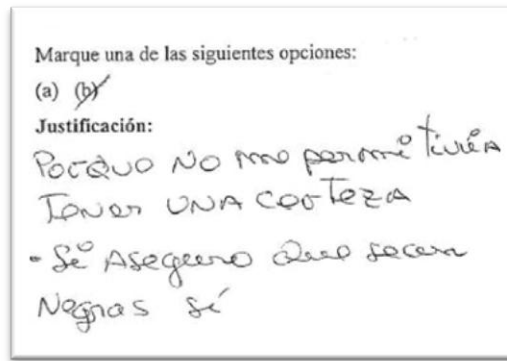 Marque una de las siguientes opciones:
(a) (b)
Justificación:
Porque no me permitiría
Tener UNA certeza
- Sé Aseguro Que sacan
Negras sí